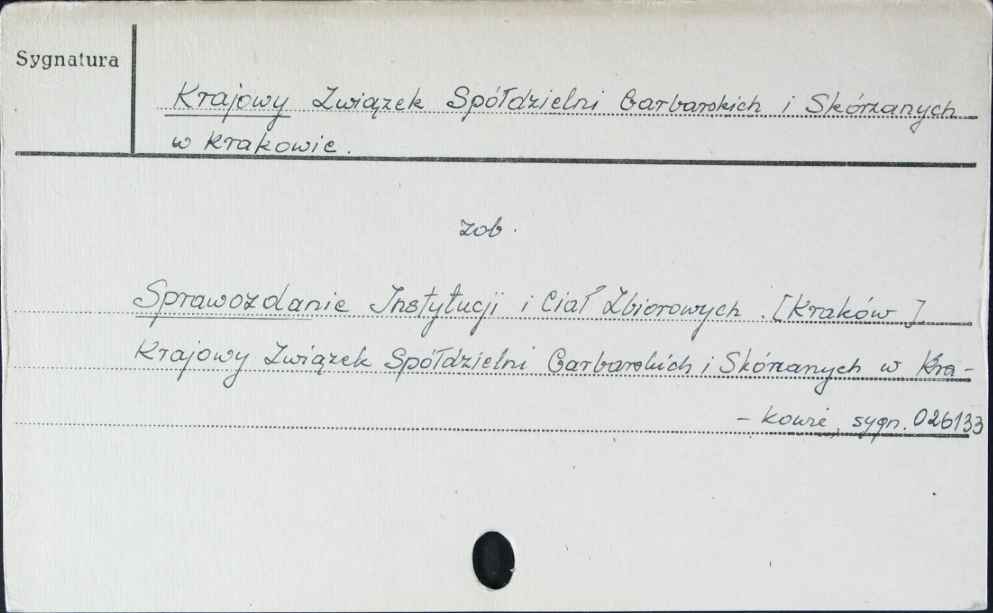 Sygnatura
Krajowy Związek Spółdzielni Garbarskich i Skórzanych
w Krakowie.
zob.
Sprawozdanie Instytucji i Ciał Zbiorowych. [Kraków]
Krajowy Związek Spółdzielni Garbarskich i Skórzanych w Kra-
- kowie, sygn. 026133